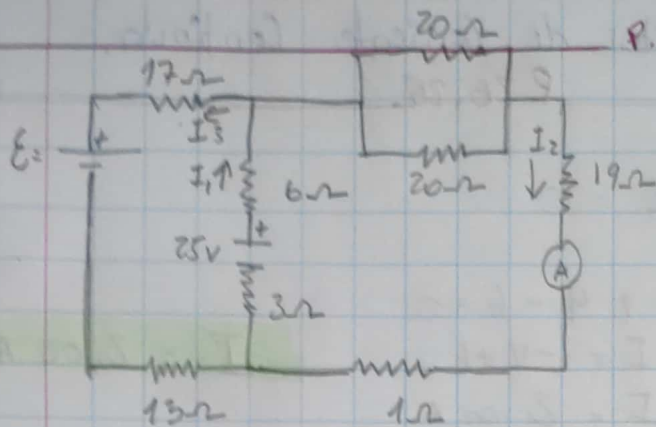 20Ω
P.
17Ω
I3
ε=
+
I1↑
6Ω
20Ω
I2
↓
19Ω
+
25V
A
3Ω
13Ω
1Ω